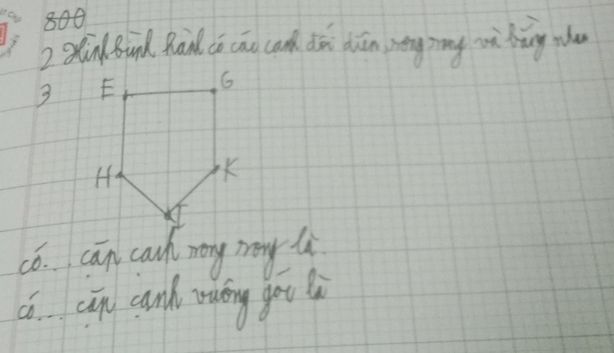 800
2 Hình bình hành có các cạnh đối diện, song song và bằng nhau
3
E G
H K
I
có... cặp cạnh song song là
có... cặp cạnh vuông góc là